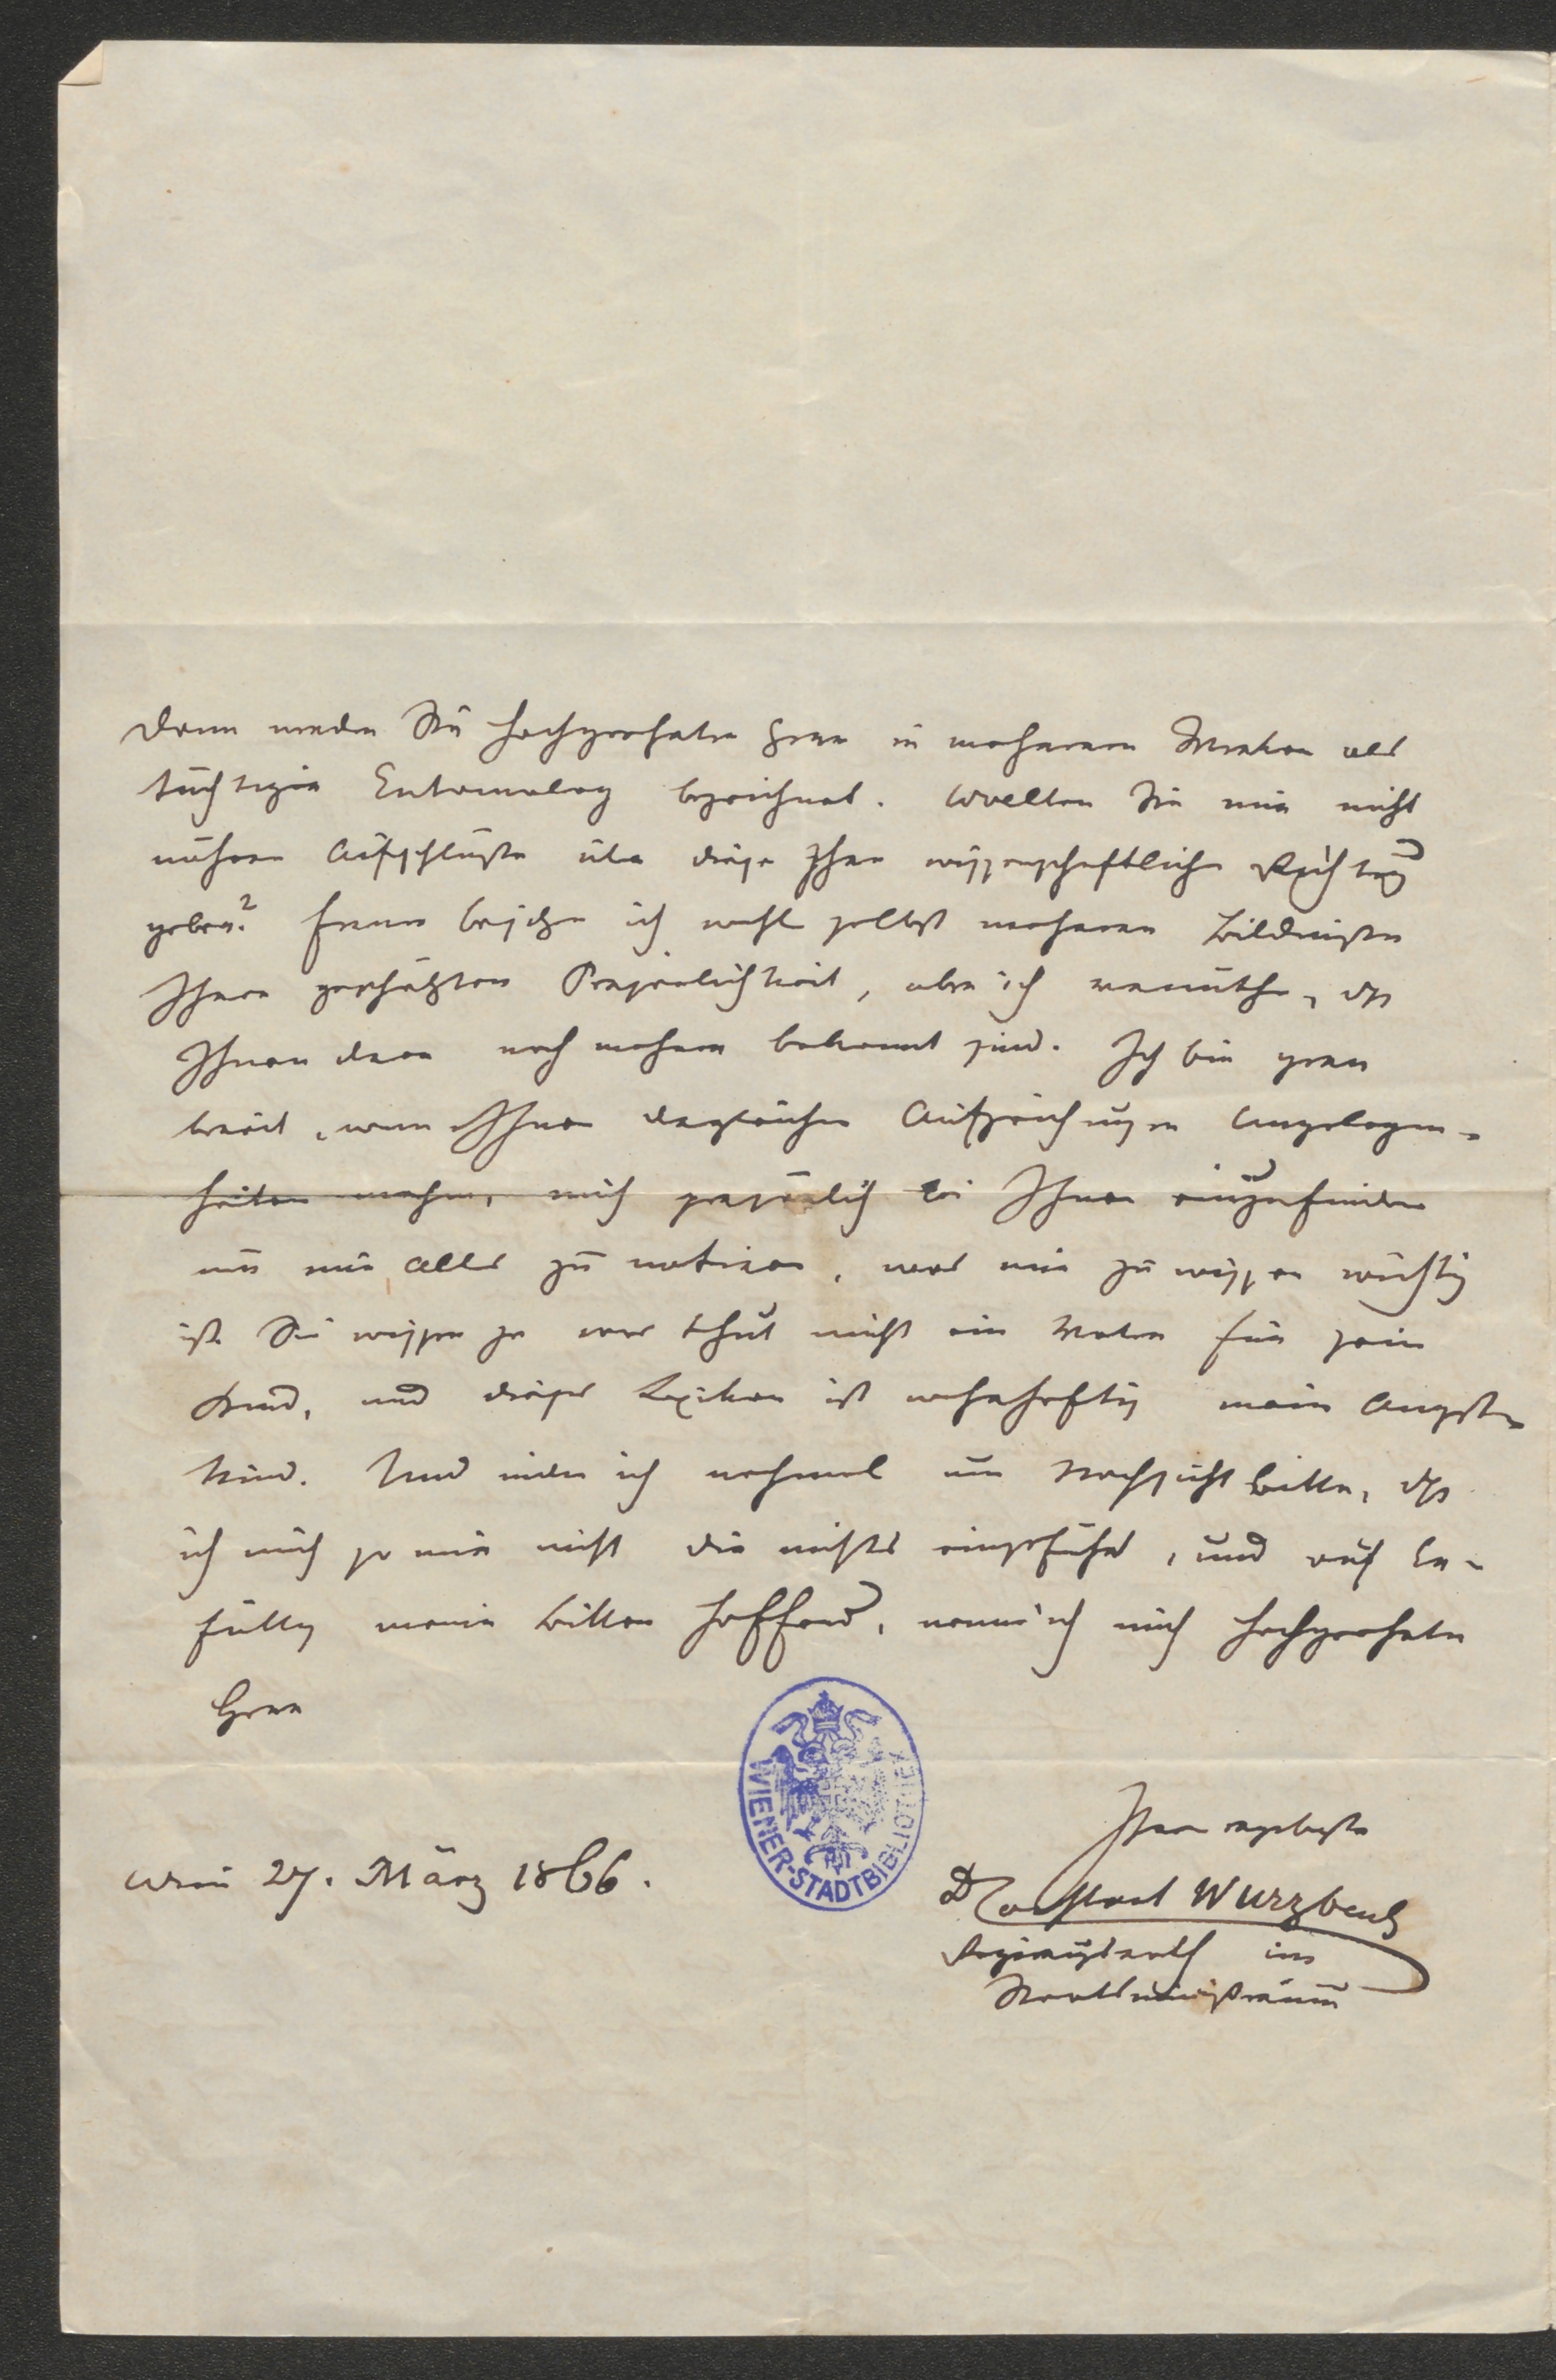 Dann werden Sie hochgeehrter Herr in mehreren Werken als
tüchtiger Entomolog bezeichnet. Wollten Sie mir nicht
nähere Aufschlüße über diese Ihre wissenschaftliche Richtung
geben? Ferner besitze ich wohl selbst mehrere Bildniße
Ihrer geschätzten Persönlichkeit, aber ich vermuthe, dß
Ihnen deren noch mehrere bekannt sind. Ich bin gern
bereit, wenn Ihnen dergleichen Aufzeichnungen Ungelegen-
heiten machen, mich persönlich bei Ihnen einzufinden
um mir alles zu notiren, was mir zu wissen wichtig
ist. Sie wissen ja was thut nicht ein Vater für sein
Kind, und dieses Lexikon ist wahrhaftig mein Angst-
kind. Und indem ich nochmal um Nachsicht bitte, dß
ich mich so mir nichts dir nichts eingeführt, und auf Er-
füllung meiner Bitten hoffend, nenne ich mich hochgeehrter
Herr
Ihren ergebensten
Wien 27. März 1866.
D Constant Wurzbach
Regierungsrath im
Staatsministerium
WIENER-STADTBIBLIOTHEK